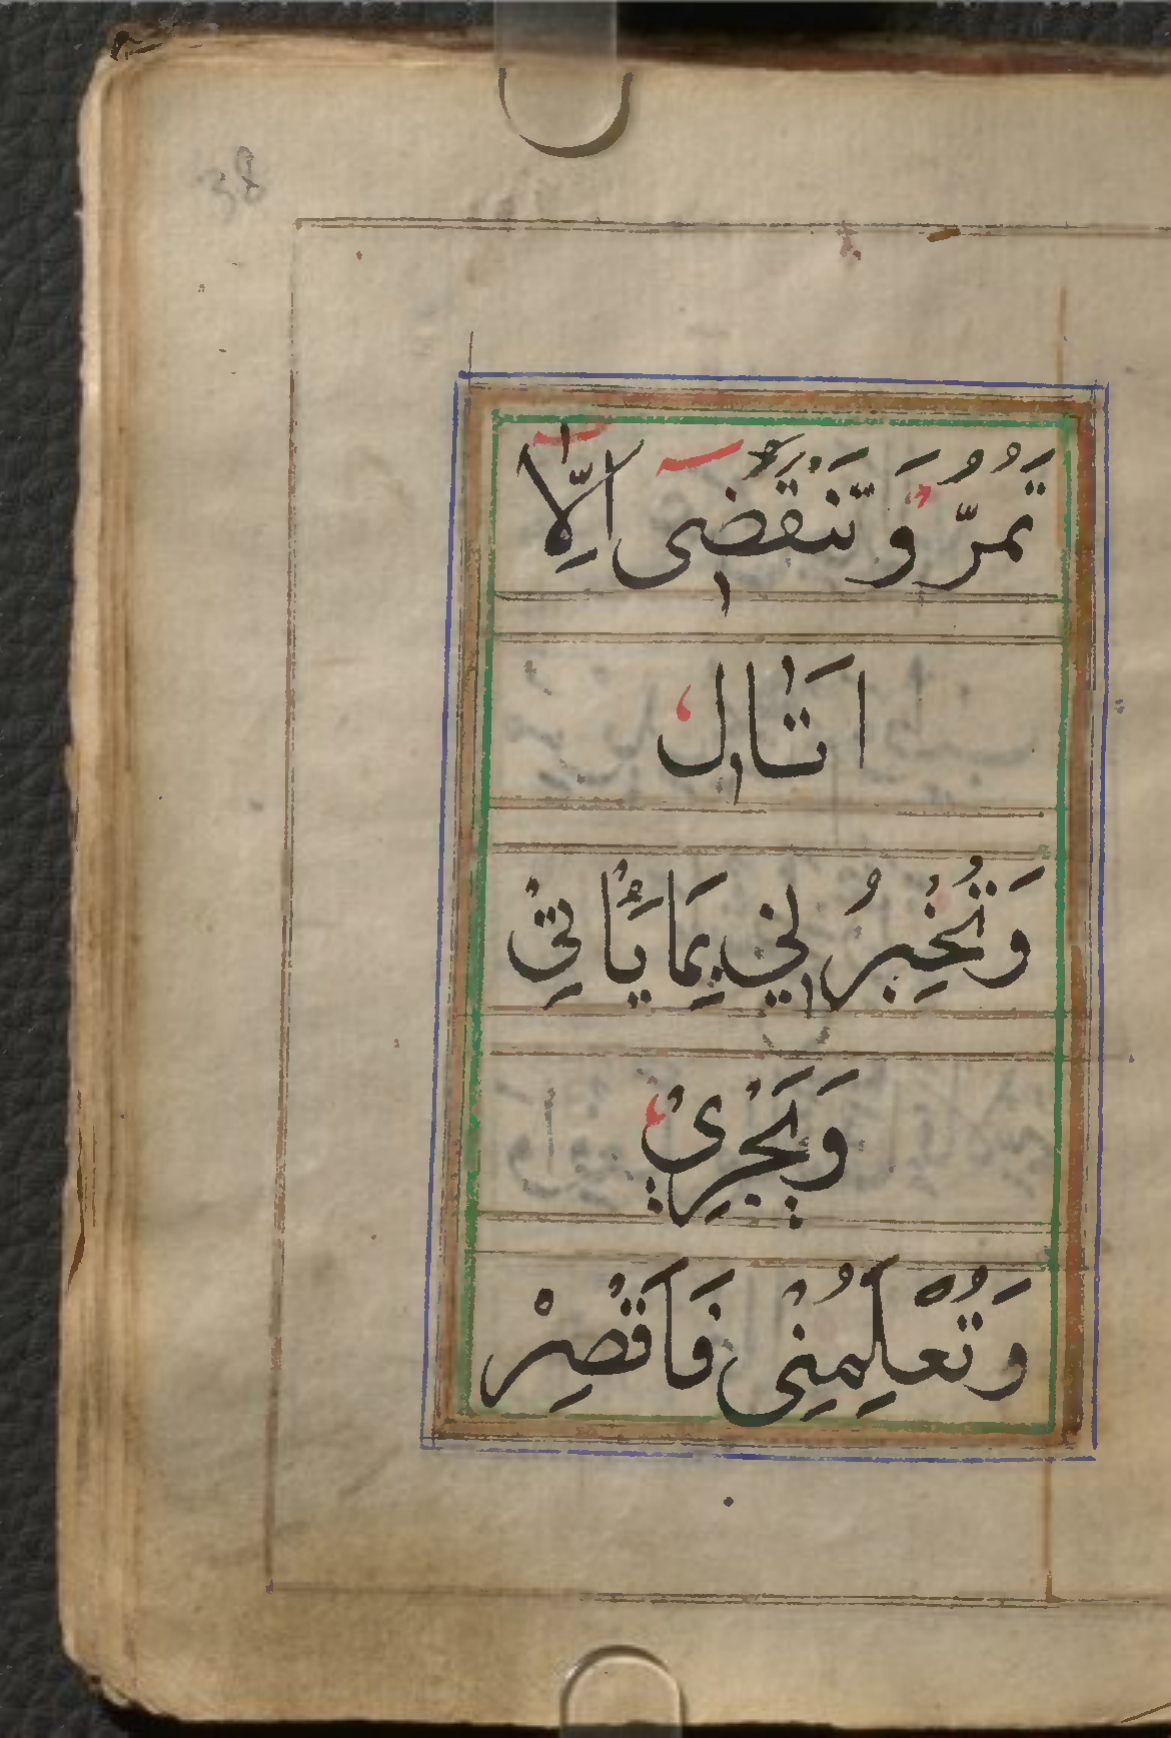 38
تَمُرُّ وَتَنْقَضِى اِلَّا
اتَاال
وَتُخْبِرُ لِي بِمَا يَأْتِيْ
وَيَجْرِيْ
وَتُعْلِمُنِى فَاَقْصِرْ